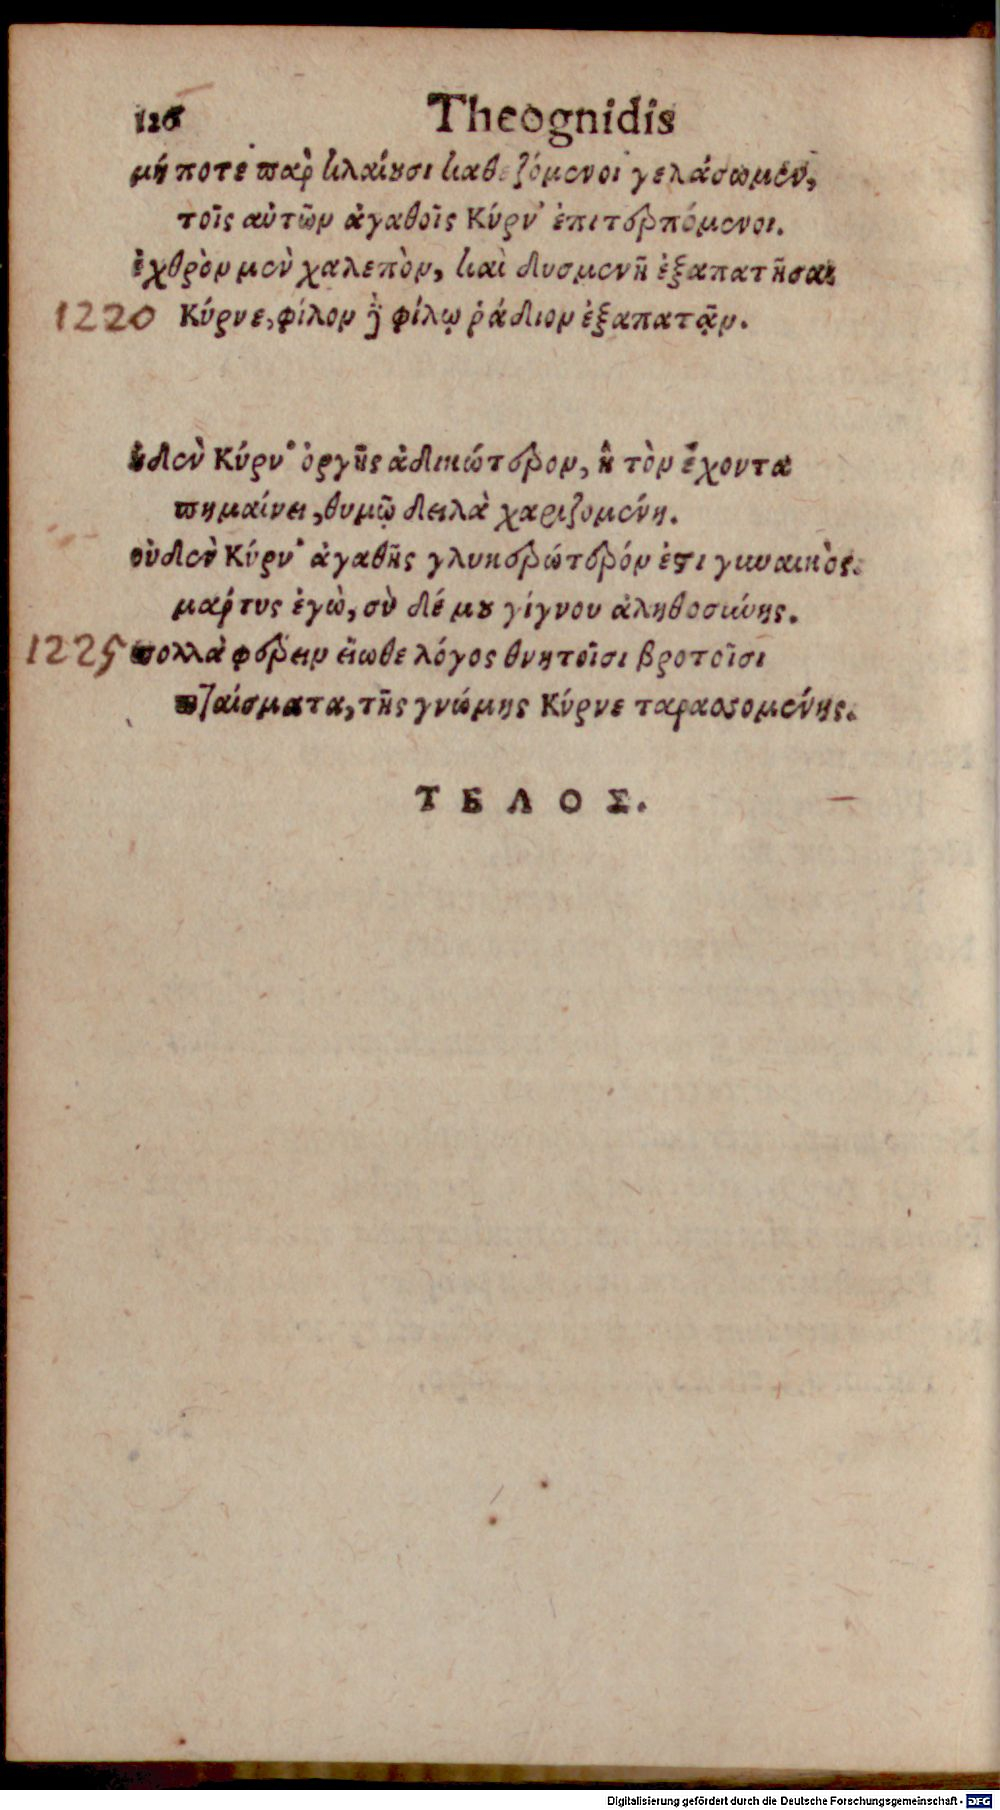 126 Theognidis
μή ποτε παρ κλαίουσι καθεζόμενοι γελάσωμεν,
τοῖς αὐτῶν ἀγαθοῖς Κύρν' ἐπιτερπόμενοι.
ἐχθρὸν μὲν χαλεπὸν, καὶ δυσμενῆ ἐξαπατῆσαι
1220 Κύρνε, φίλον δὲ φίλῳ ῥάδιον ἐξαπατᾷν.
οὐδὲν Κύρν' ὀργῆς ἀδικώτερον, ἣ τὸν ἔχοντα
πημαίνει, θυμῷ δειλὰ χαριζομένη.
οὐδὲν Κύρν' ἀγαθῆς γλυκερώτερόν ἐστι γυναικὸς.
μάρτυς ἐγὼ, σὺ δέ μου γίγνου ἀληθοσύνης.
1225 πολλὰ φέρειν εἴωθε λόγος θνητοῖσι βροτοῖσι
πταίσματα, τῆς γνώμης Κύρνε ταρασσομένης.
ΤΕΛΟΣ.
Digitalisierung gefördert durch die Deutsche Forschungsgemeinschaft - DFG